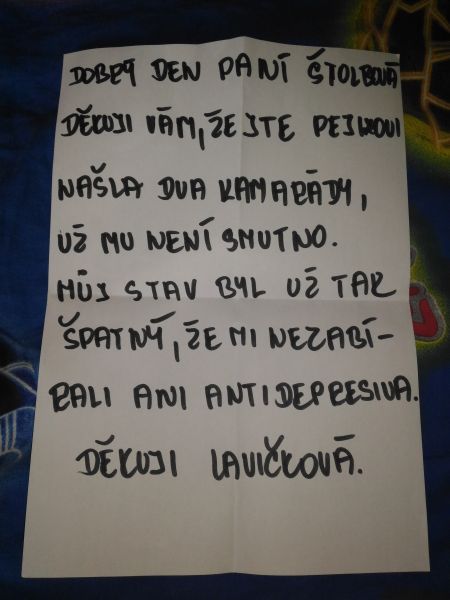 DOBRÝ DEN PANÍ ŠTOLBOVÁ
DĚKUJI VÁM, ŽE JTE PEJKOVI
NAŠLA DVA KAMARÁDY,
UŽ MU NENÍ SMUTNO.
MŮJ STAV BYL UŽ TAK
ŠPATNÝ, ŽE MI NEZABÍ-
RALI ANI ANTIDEPRESIVA.
DĚKUJI LAVIČKOVÁ.